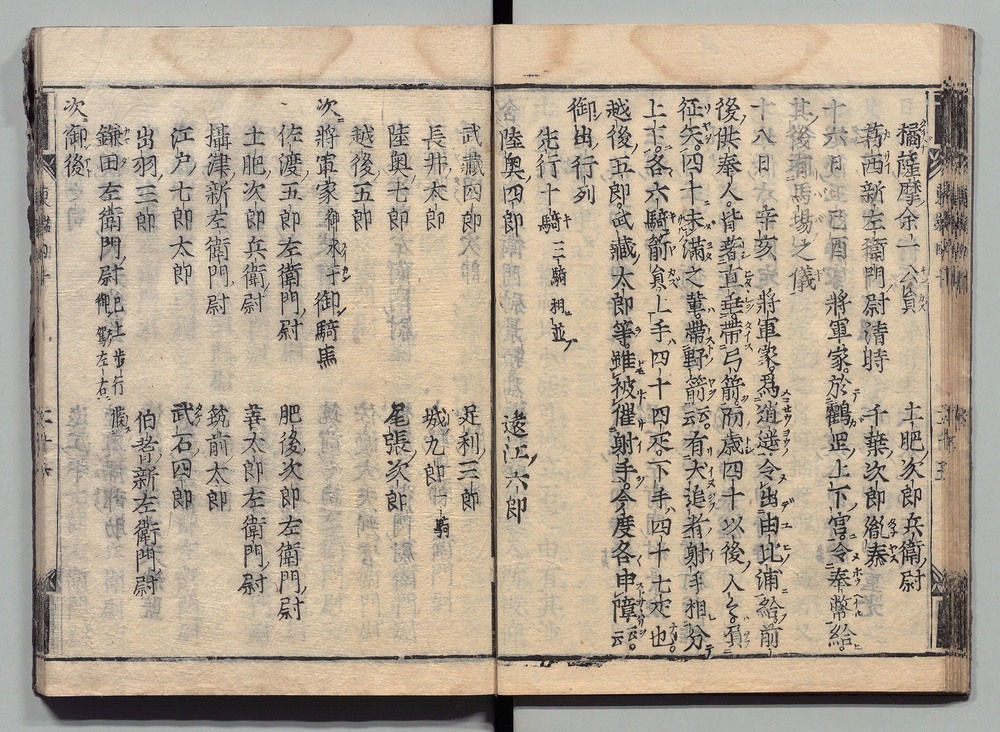 橘薩摩余一公員 土肥次郎兵衛尉
葛西新左衛門尉清時 千葉次郎胤泰
十六日 己酉 將軍家於鶴岡上下宮令奉幣給
其後有馬場之儀
十八日 辛亥 將軍家爲逍遥令出由比浦給前
後供奉人皆著直垂帶弓箭而歳四十以後人令負
征矢四十未滿之輩帶野箭云云有犬追者射手相分
上下各六騎箭員上手四十四疋下手四十七疋也
越後五郎武藏太郎等雖被催射手今度各申障云云
御出行列
先行十騎三騎羽並
陸奥四郎 遠江六郎
武藏四郎 足利三郎
長井太郎 城九郎一騎
陸奥七郎 尾張次郎
越後五郎
次將軍家御水干御騎馬
佐渡五郎左衛門尉 肥後次郎左衛門尉
土肥次郎兵衛尉 善太郎左衛門尉
攝津新左衛門尉 筑前太郎
江戸七郎太郎 武石四郎
出羽三郎 伯耆新左衛門尉
鎌田左衛門尉已上歩行御駕左右
次御後